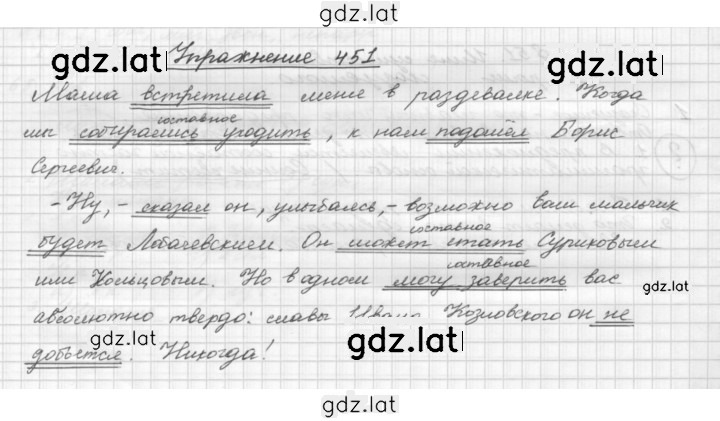 gdz.lat
gdz.lat
gdz.lat
Упражнение 451
Маша встретила меня в раздевалке. Когда
составное
мы собирались уходить, к нам подошёл Борис
Сергеевич.
- Ну, - сказал он, улыбаясь, - возможно ваш мальчик
составное
будет Лобачевским. Он может стать Суриковым
составное
или Кольцовым. Но в одном могу заверить вас
gdz.lat
абсолютно твердо: славы Ивана Козловского он не
gdz.lat
gdz.lat
добьется. Никогда!
gdz.lat